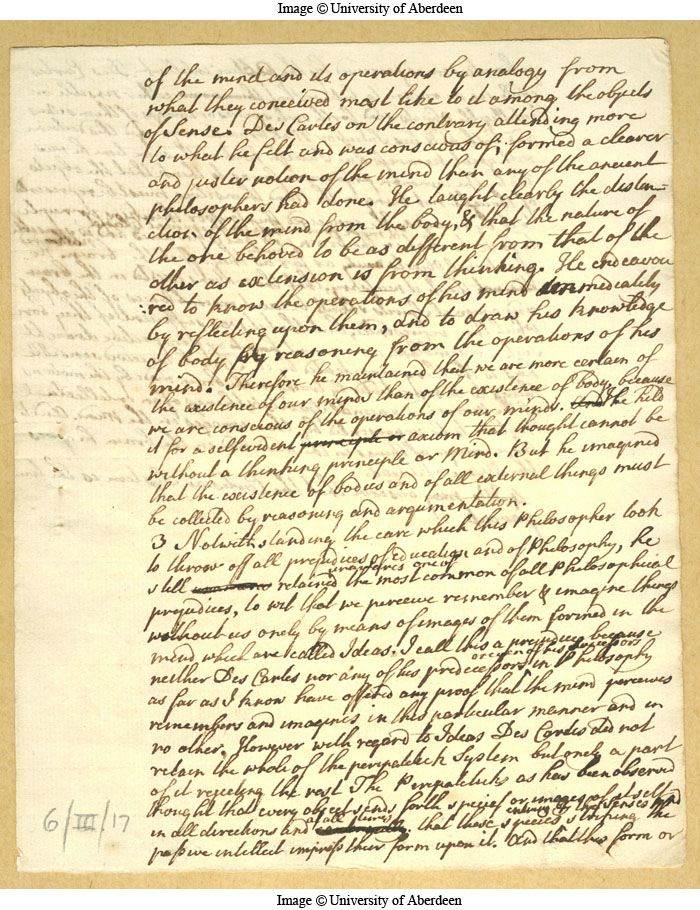 Image © University of Aberdeen
of the mind and its operations by analogy from
what they conceived most like to it among the objects
of Sense. Des Cartes on the contrary attending more
to what he felt and was conscious of; formed a clearer
and juster notion of the mind than any of the ancient
philosophers had done. He taught clearly the distin-
ction of the mind from the body, & that the nature of
the one behoved to be as different from that of the
other as extension is from thinking. He endeavou
red to know the operations of his mind immediately
by reflecting upon them, and to draw his knowledge
of body by reasoning from the operations of his
mind. Therefore he maintained that we are more certain of
the existence of our minds than of the existence of body, because
we are conscious of the operations of our minds. And he held
it for a selfevident principle or axiom that thought cannot be
without a thinking principle or Mind. But he imagined
that the existence of bodies and of all external things must
be collected by reasoning and argumentation.
3 Notwithstanding the care which this Philosopher took
to throw off all prejudices of education and of Philosophy, he
unawares one of
still retained the most common of all Philosophical
prejudices, to wit that we perceive remember & imagine things
without us onely by means of images of them formed in the
mind which are called Ideas. I call this a prejudice because
or even of his successors
neither Des Cartes nor any of his predecessors in Philosophy
as far as I know have offered any proof that the mind perceives
remembers and imagines in this particular manner and in
no other. However with regard to Ideas Des Cartes did not
retain the whole of the peripatetick System but onely a part
of it rejecting the rest The Peripateticks as has been observed
thought that every object sends forth species or images of itself
at all times entring by the senses and
in all directions and that these species striking the
passive intellect impress their form upon it. And that this form or
6/III/17
Image © University of Aberdeen